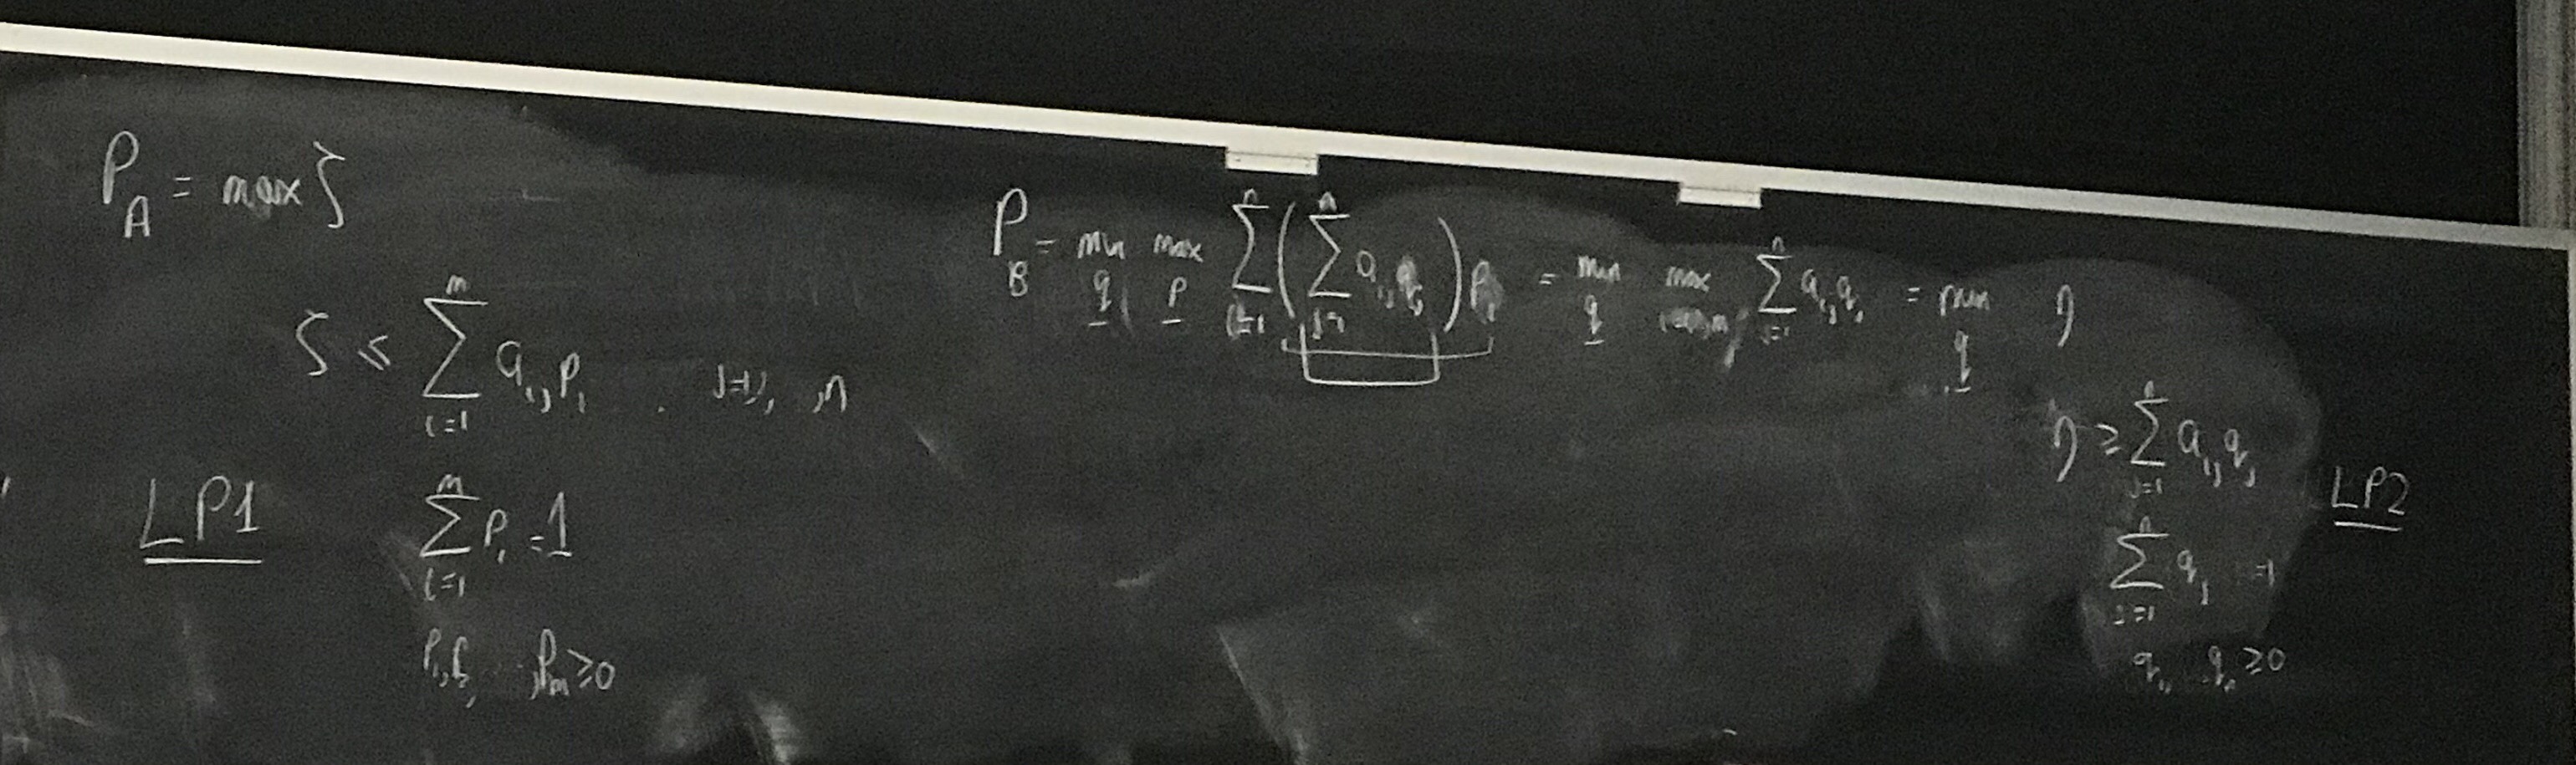 P_A = max ζ
ζ ≤ ∑_{i=1}^{m} a_{ij} p_i , j=1, , n
LP1
∑_{i=1}^{m} p_i = 1
p_1, p_2, , p_m ≥ 0
P_B = min_q max_p ∑_{i=1}^{n} ( ∑_{j=1}^{n} a_{ij} q_j ) p_i = min_q max ∑_{j=1}^{n} a_{ij} q_j = min_q η
η ≥ ∑_{j=1}^{n} a_{ij} q_j
LP2
∑_{j=1}^{n} q_j = 1
q_1, q_n ≥ 0